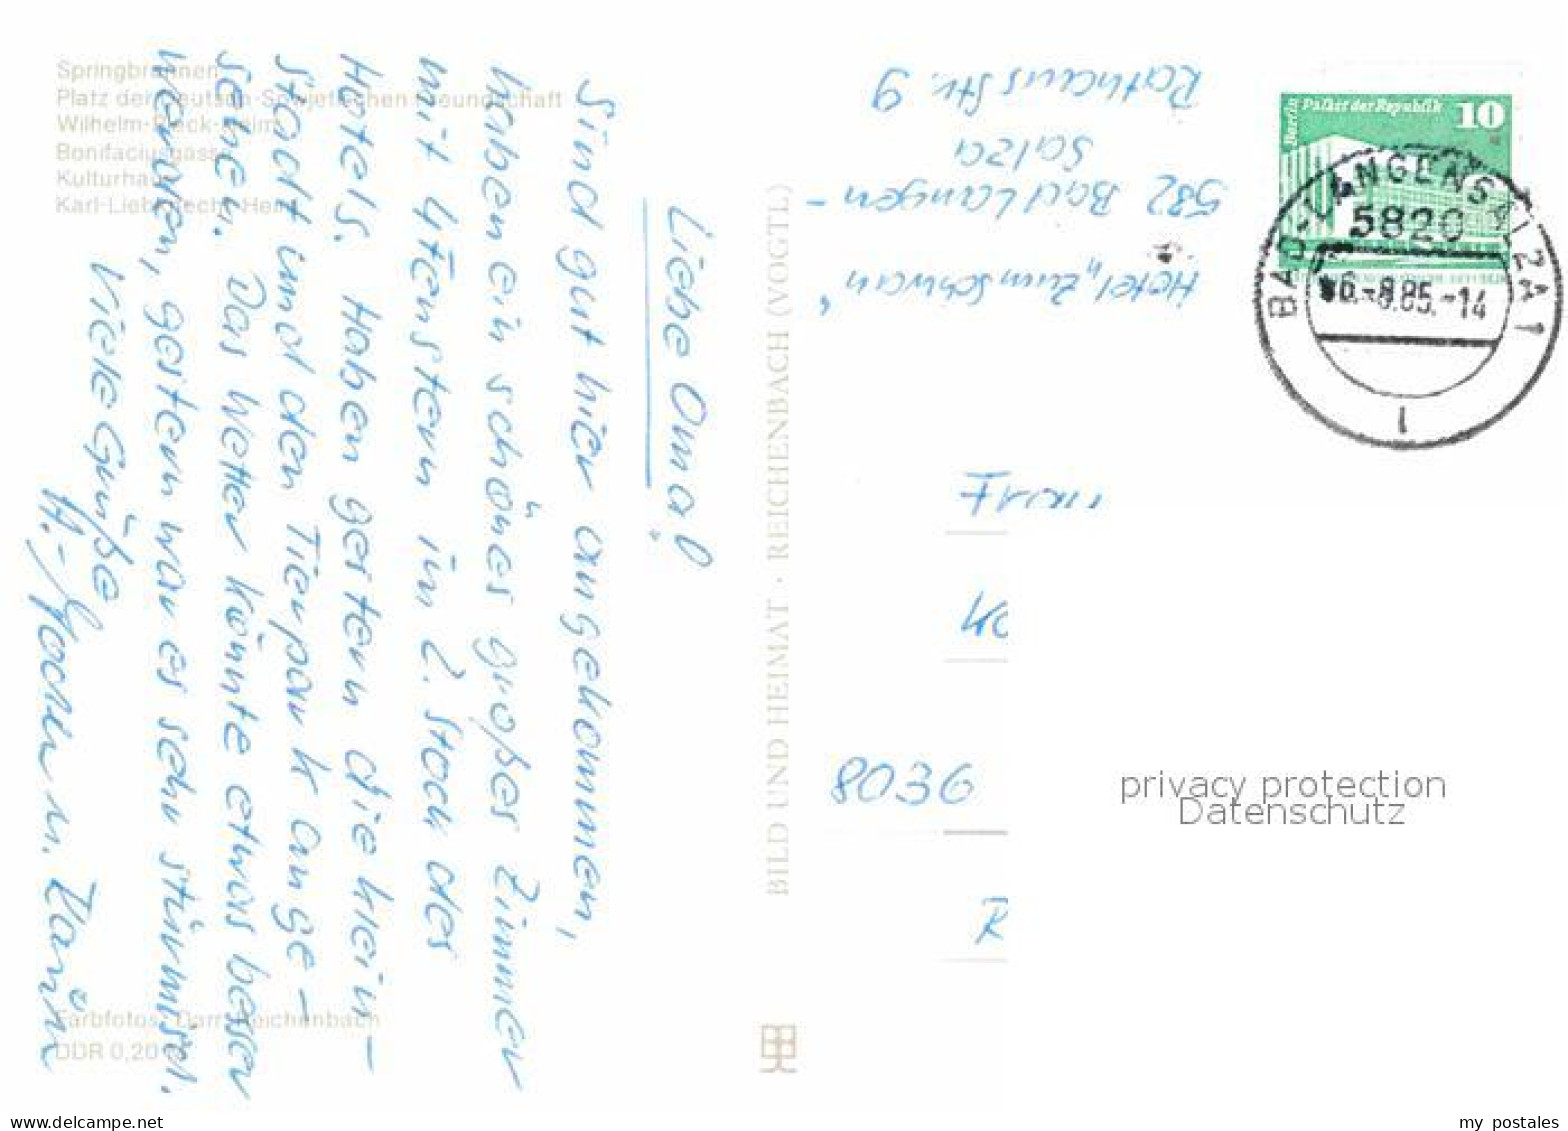 Springbrunnen
Platz der Deutsch-Sowjetischen Freundschaft
Wilhelm-Pieck-Heim
Bonifaciusgasse
Kulturhaus
Karl-Liebknecht-Heim
Liebe Oma!
Sind gut hier angekommen,
haben ein schönes großes Zimmer
mit 4 Fenstern im 2. Stock des
Hotels. Haben gestern die Klein-
stadt und den Tierpark ange-
sehen. Das Wetter könnte etwas besser
werden, gestern war es sehr stürmisch.
Viele Grüße
H.-Jochen u. Karin
Farbfotos: Darr, Reichenbach
DDR 0,20
BILD UND HEIMAT · REICHENBACH (VOGTL)
Hotel "Zum Schwan"
582 Bad Langen-
salza
Rathausstr. 9
Berlin Palast der Republik 10
BAD LANGENSALZA 1
5820
-6.-8.85.-14
l
8036
privacy protection
Datenschutz
www.delcampe.net
my_postales